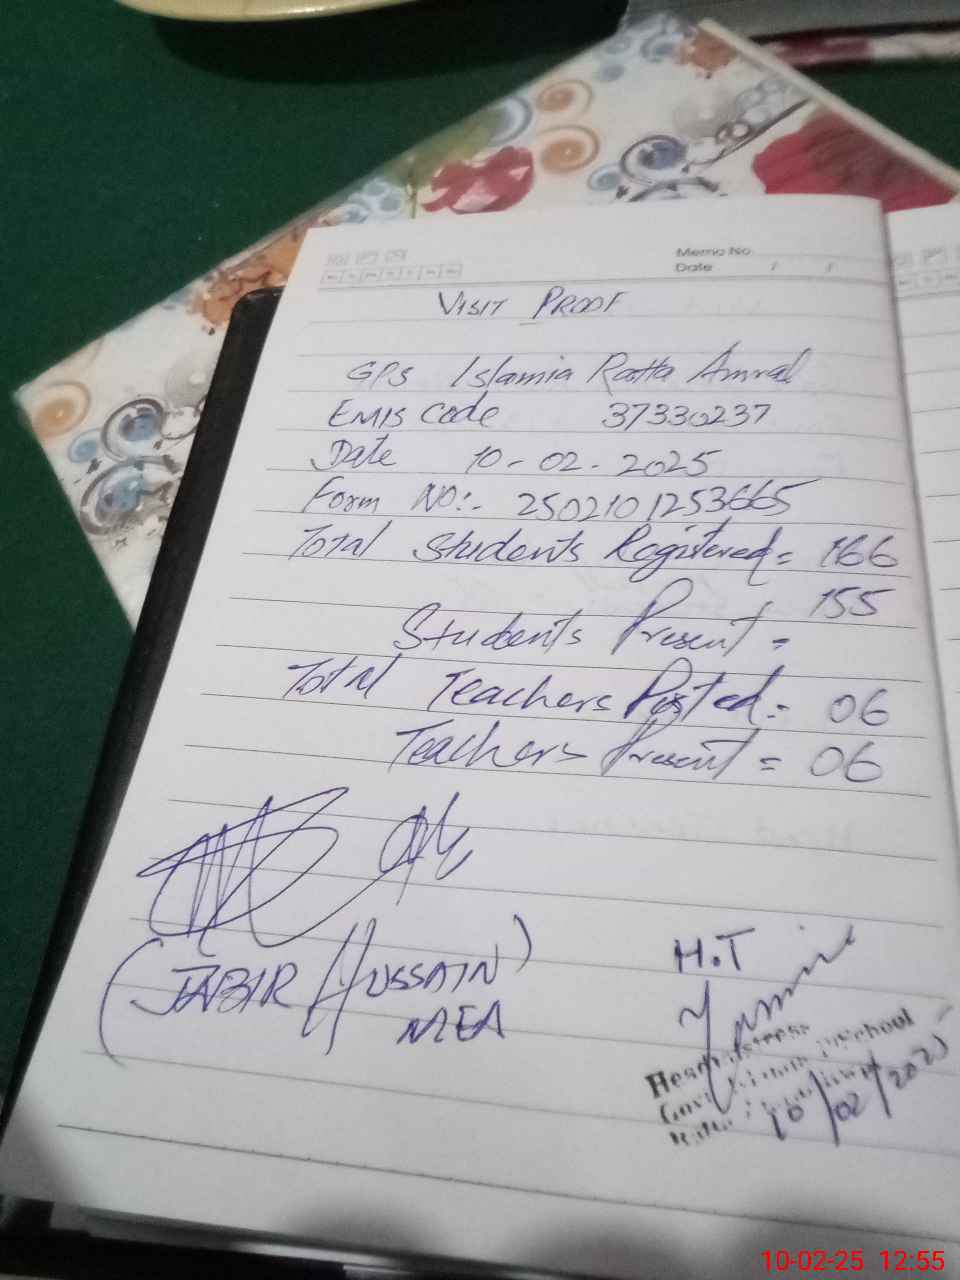 Memo No
Date / /
VISIT PROOF
GPS Islamia Ratta Amral
EMIS Code 37330237
Date 10-02-2025
Form NO:- 2502101253665
Total Students Registered = 166
Students Present = 155
Total Teachers Posted = 06
Teachers Present = 06
(JABIR HUSSAIN)
MEA
H.T
Headmistress
Govt School
Ratta
10/02/2025
10-02-25 12:55